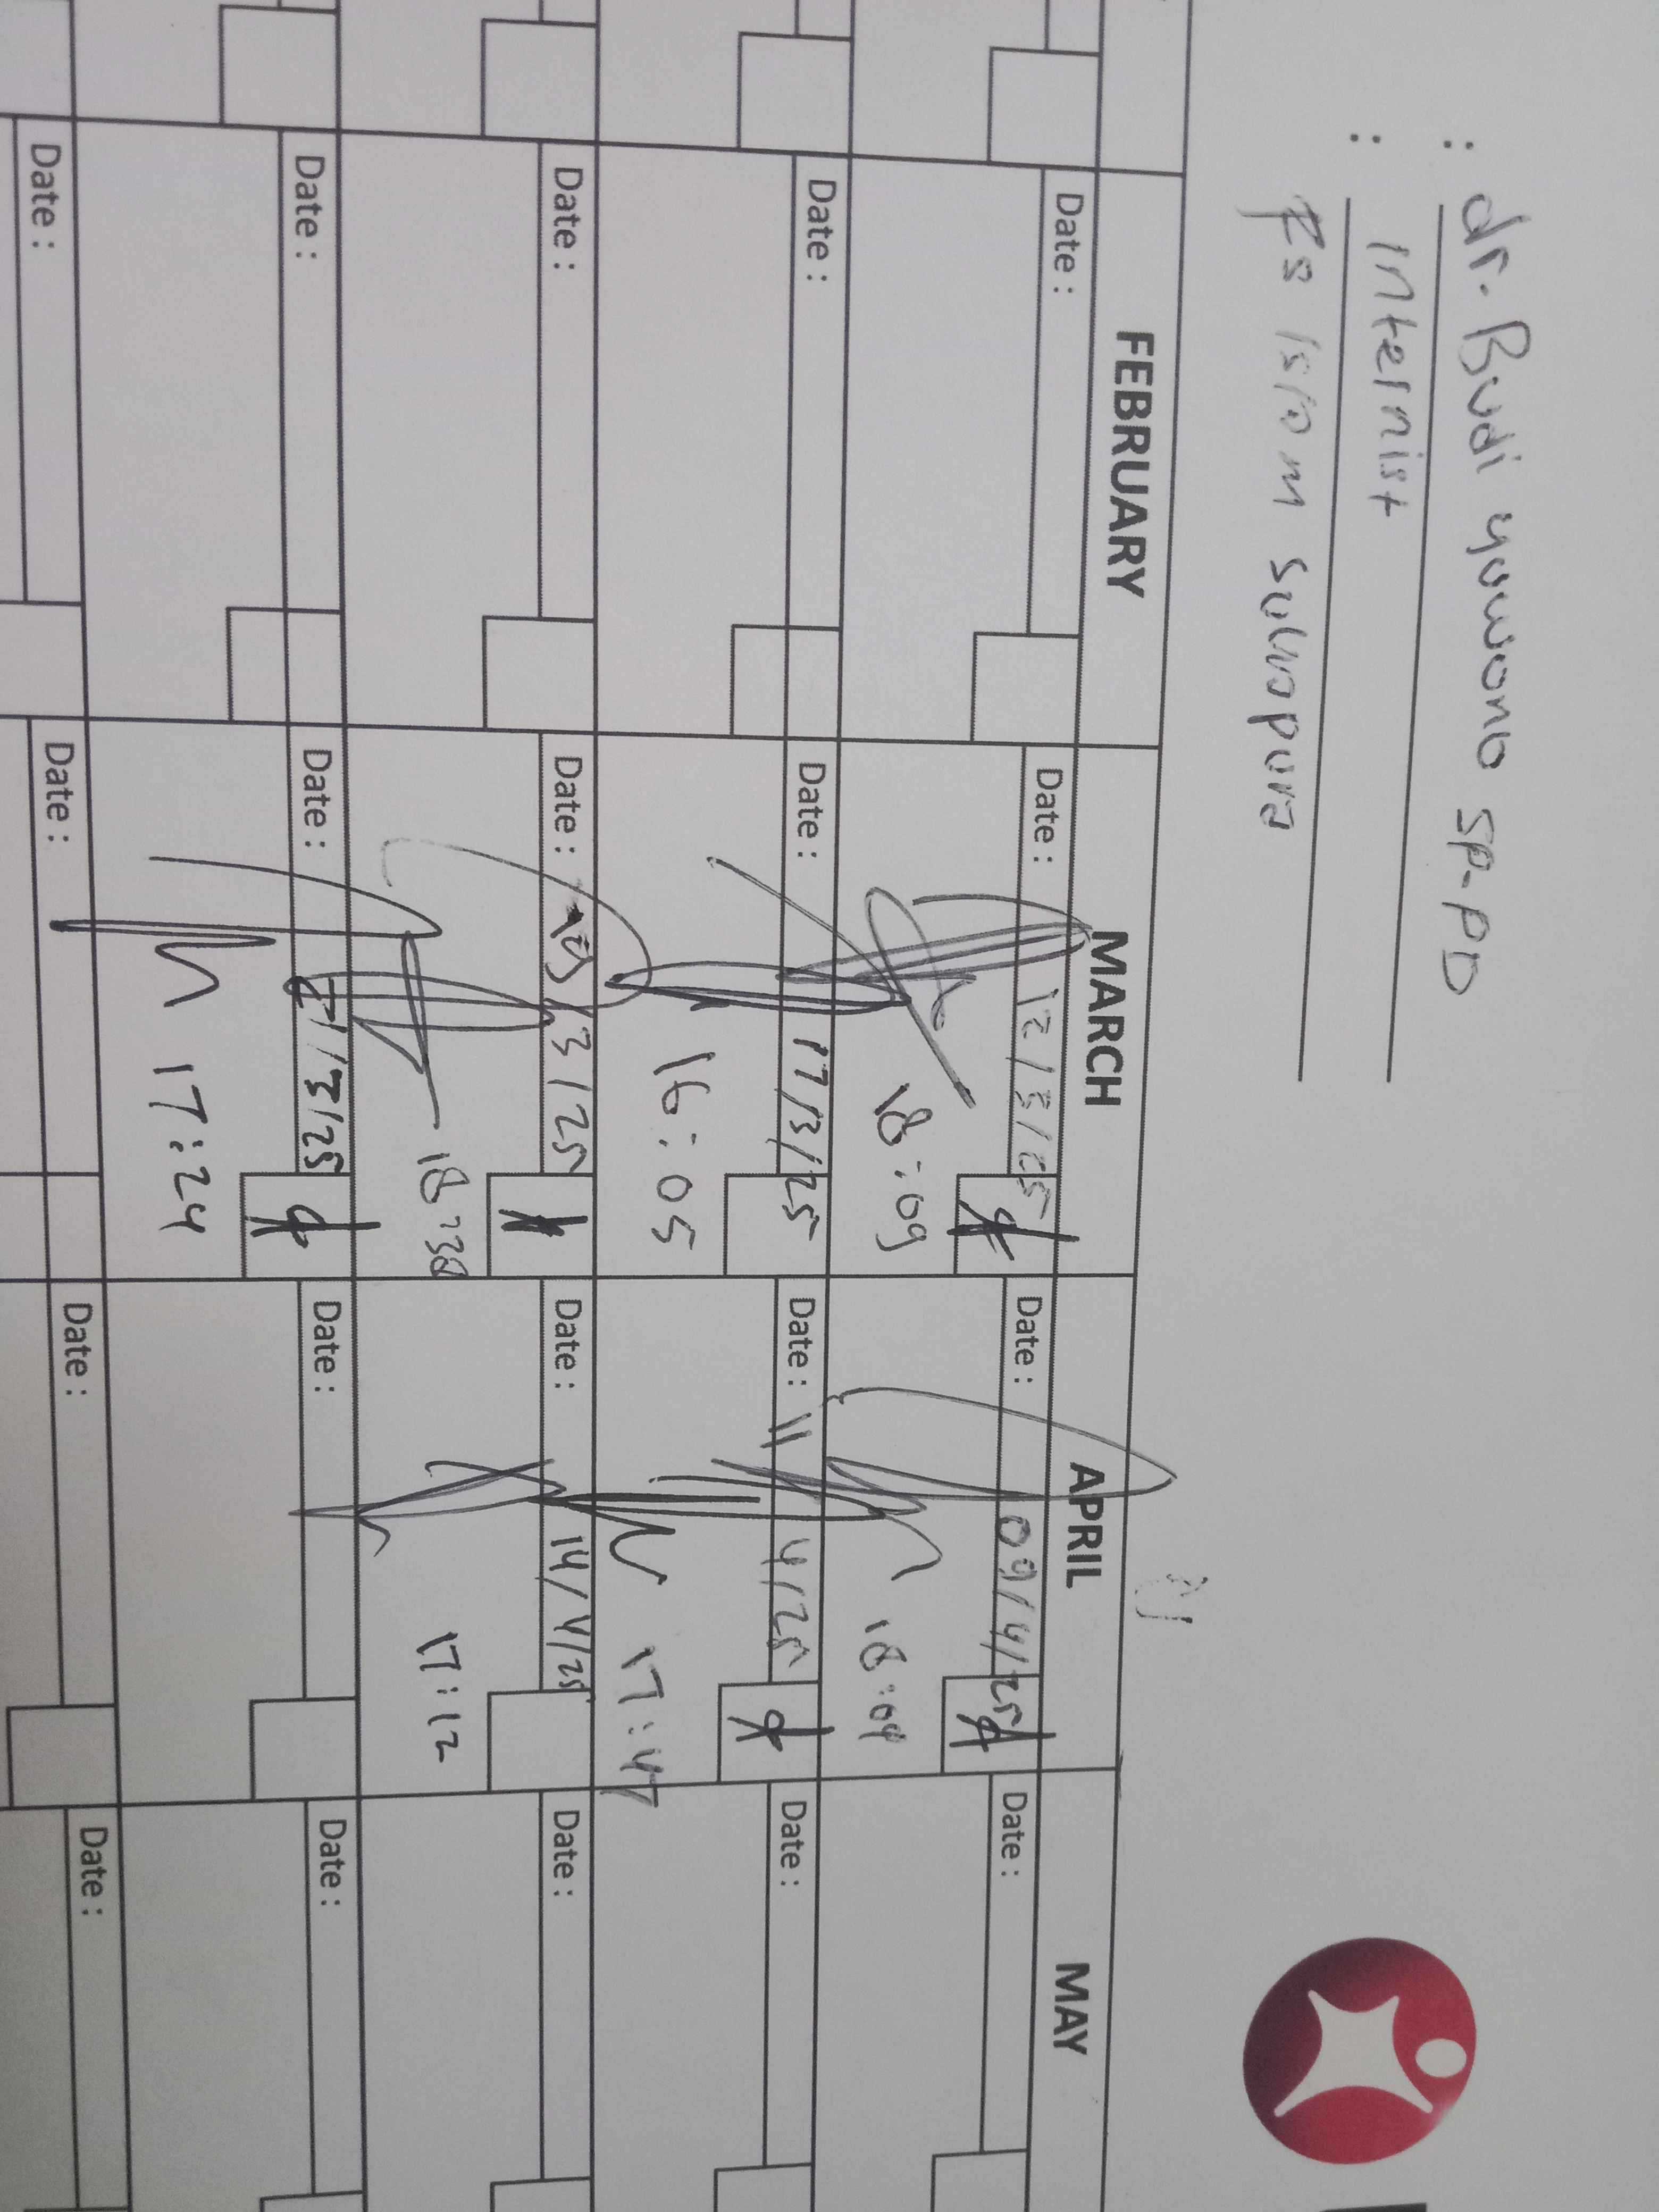 : dr. Budi yuwono SP-PD
: Internist
RS Islam Sukapura
FEBRUARY MARCH APRIL MAY
Date : Date : 12/3/25 Date : 09/4/25 Date :
18:09 18:09
Date : Date : 17/3/25 Date : 11 4/25 Date :
16:05 17:47
Date : Date : /3/25 Date : 14/4/25 Date :
18:38 17:12
Date : Date : /3/25 Date : Date :
17:24
Date : Date : Date : Date :